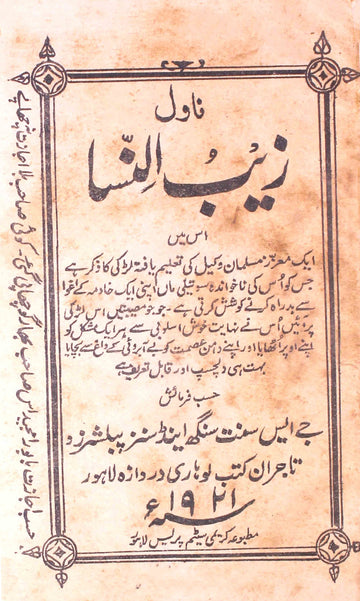 ناول
زیب النسا
اس میں
ایک معزز مسلمان وکیل کی تعلیم یافتہ لڑکی کا ذکر ہے
جس کو اُس کی ناخواندہ سوتیلی ماں اپنی ایک خادمہ کے اغوا
سے بدراہ کرنے کی کوشش کرتی ہے۔ جو جو مصیبتیں اس لڑکی
پر پڑیں اُس نے نہایت خوش اسلوبی سے ہر ایک مشکل کو
اپنے اوپر اٹھایا اور اپنے دامن عصمت کو بے آبروئی کے داغ سے بچایا
بہت ہی دلچسپ اور قابل تعریف ہے
حسب فرمائش
جے ایس سنت سنگھ اینڈ سنز پبلشرز و
تاجران کتب لوہاری دروازہ لاہور
سنہ ۱۹۲۱ء
مطبوعہ کریمی سٹیم پریس لاہور
حسب اجازت بابو صاحب چھاپی گئی۔ کوئی صاحب بلا اجازت نہ چھاپے